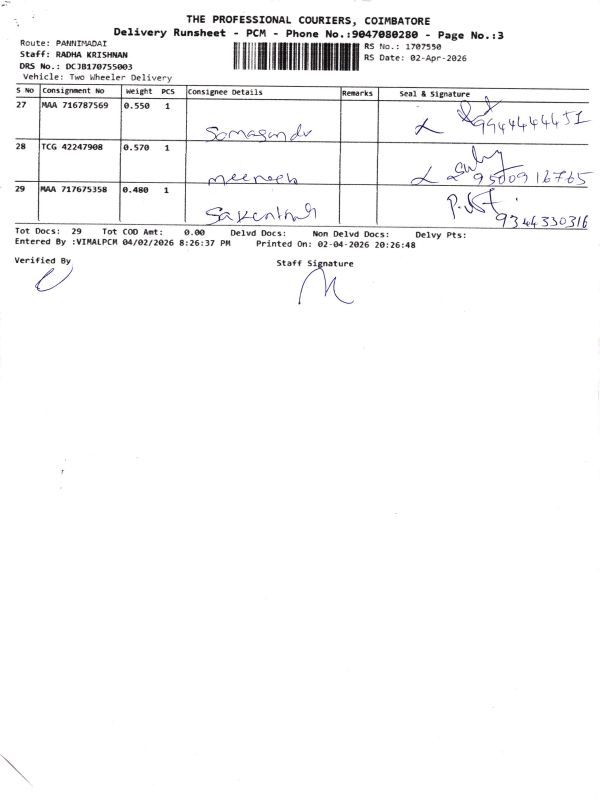 THE PROFESSIONAL COURIERS, COIMBATORE
Delivery Runsheet - PCM - Phone No.:9047080280 - Page No.:3
Route: PANNIMADAI
Staff: RADHA KRISHNAN
DRS No.: DCJB170755003
Vehicle: Two Wheeler Delivery
RS No.: 1707550
RS Date: 02-Apr-2026
S No Consignment No Weight PCS Consignee Details Remarks Seal & Signature
27 MAA 716787569 0.550 1
9944444451
28 TCG 42247908 0.570 1
9500916765
29 MAA 717675358 0.480 1
9344330316
Tot Docs: 29 Tot COD Amt: 0.00 Delvd Docs: Non Delvd Docs: Delvy Pts:
Entered By :VIMALPCM 04/02/2026 8:26:37 PM Printed On: 02-04-2026 20:26:48
Verified By
Staff Signature